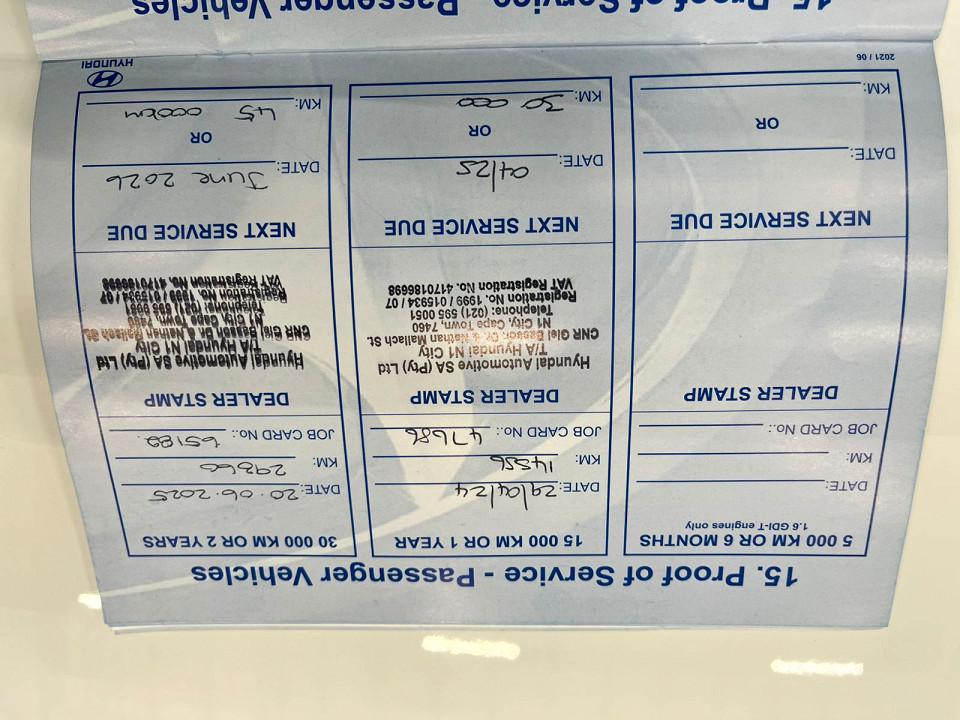 15. Proof of Service - Passenger Vehicles
5 000 KM OR 6 MONTHS
1.6 GDI-T engines only
DATE:
KM:
JOB CARD No.:
DEALER STAMP
NEXT SERVICE DUE
DATE:
OR
KM:
2021 / 06
15 000 KM OR 1 YEAR
DATE: 29/04/24
KM:
JOB CARD No.: 47686
DEALER STAMP
Hyundai Automotive SA (Pty) Ltd
T/A Hyundai N1 City
CNR Giel Basson, Dr. & Nathan Mallach St.
N1 City, Cape Town, 7460
Telephone: (021) 595 0051
Registration No. 1999 / 015934 / 07
VAT Registration No. 4170186698
NEXT SERVICE DUE
DATE: 04/25
OR
KM: 30 000
30 000 KM OR 2 YEARS
DATE: 20.06.2025
KM: 29866
JOB CARD No.: 65189
DEALER STAMP
Hyundai Automotive SA (Pty) Ltd
T/A Hyundai N1 City
CNR Giel Basson, Dr. & Nathan Mallach St.
N1 City, Cape Town, 7460
Telephone: (021) 595 0051
Registration No. 1999 / 015934 / 07
VAT Registration No. 4170186698
NEXT SERVICE DUE
DATE: June 2026
OR
KM: 45 000km
HYUNDAI
15. Proof of Service - Passenger Vehicles